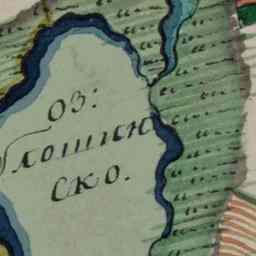 оз:
Лошин
ско.